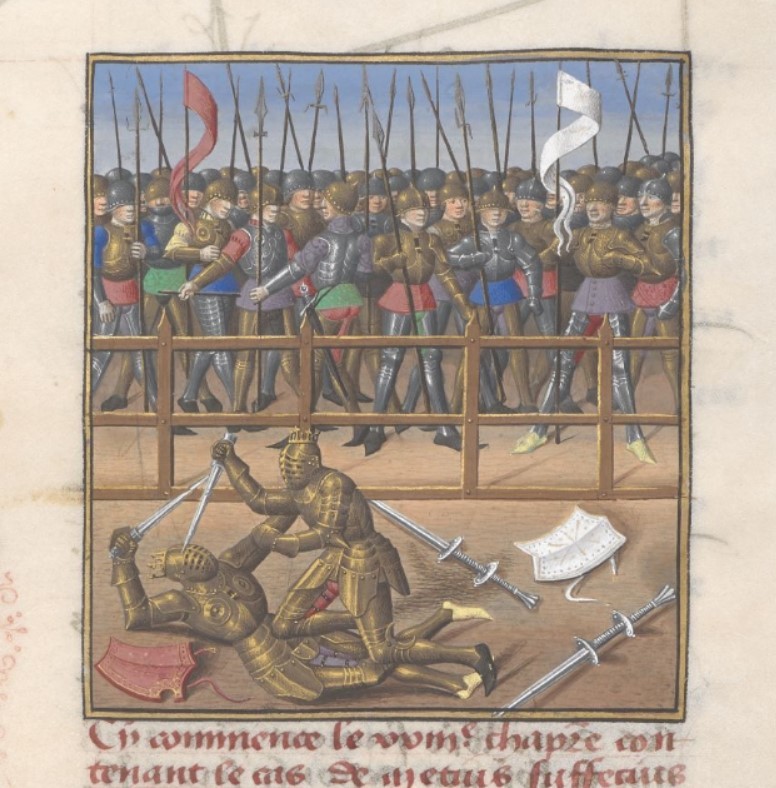 Cy commence le chapre con
tenant le cas De metius suffecius